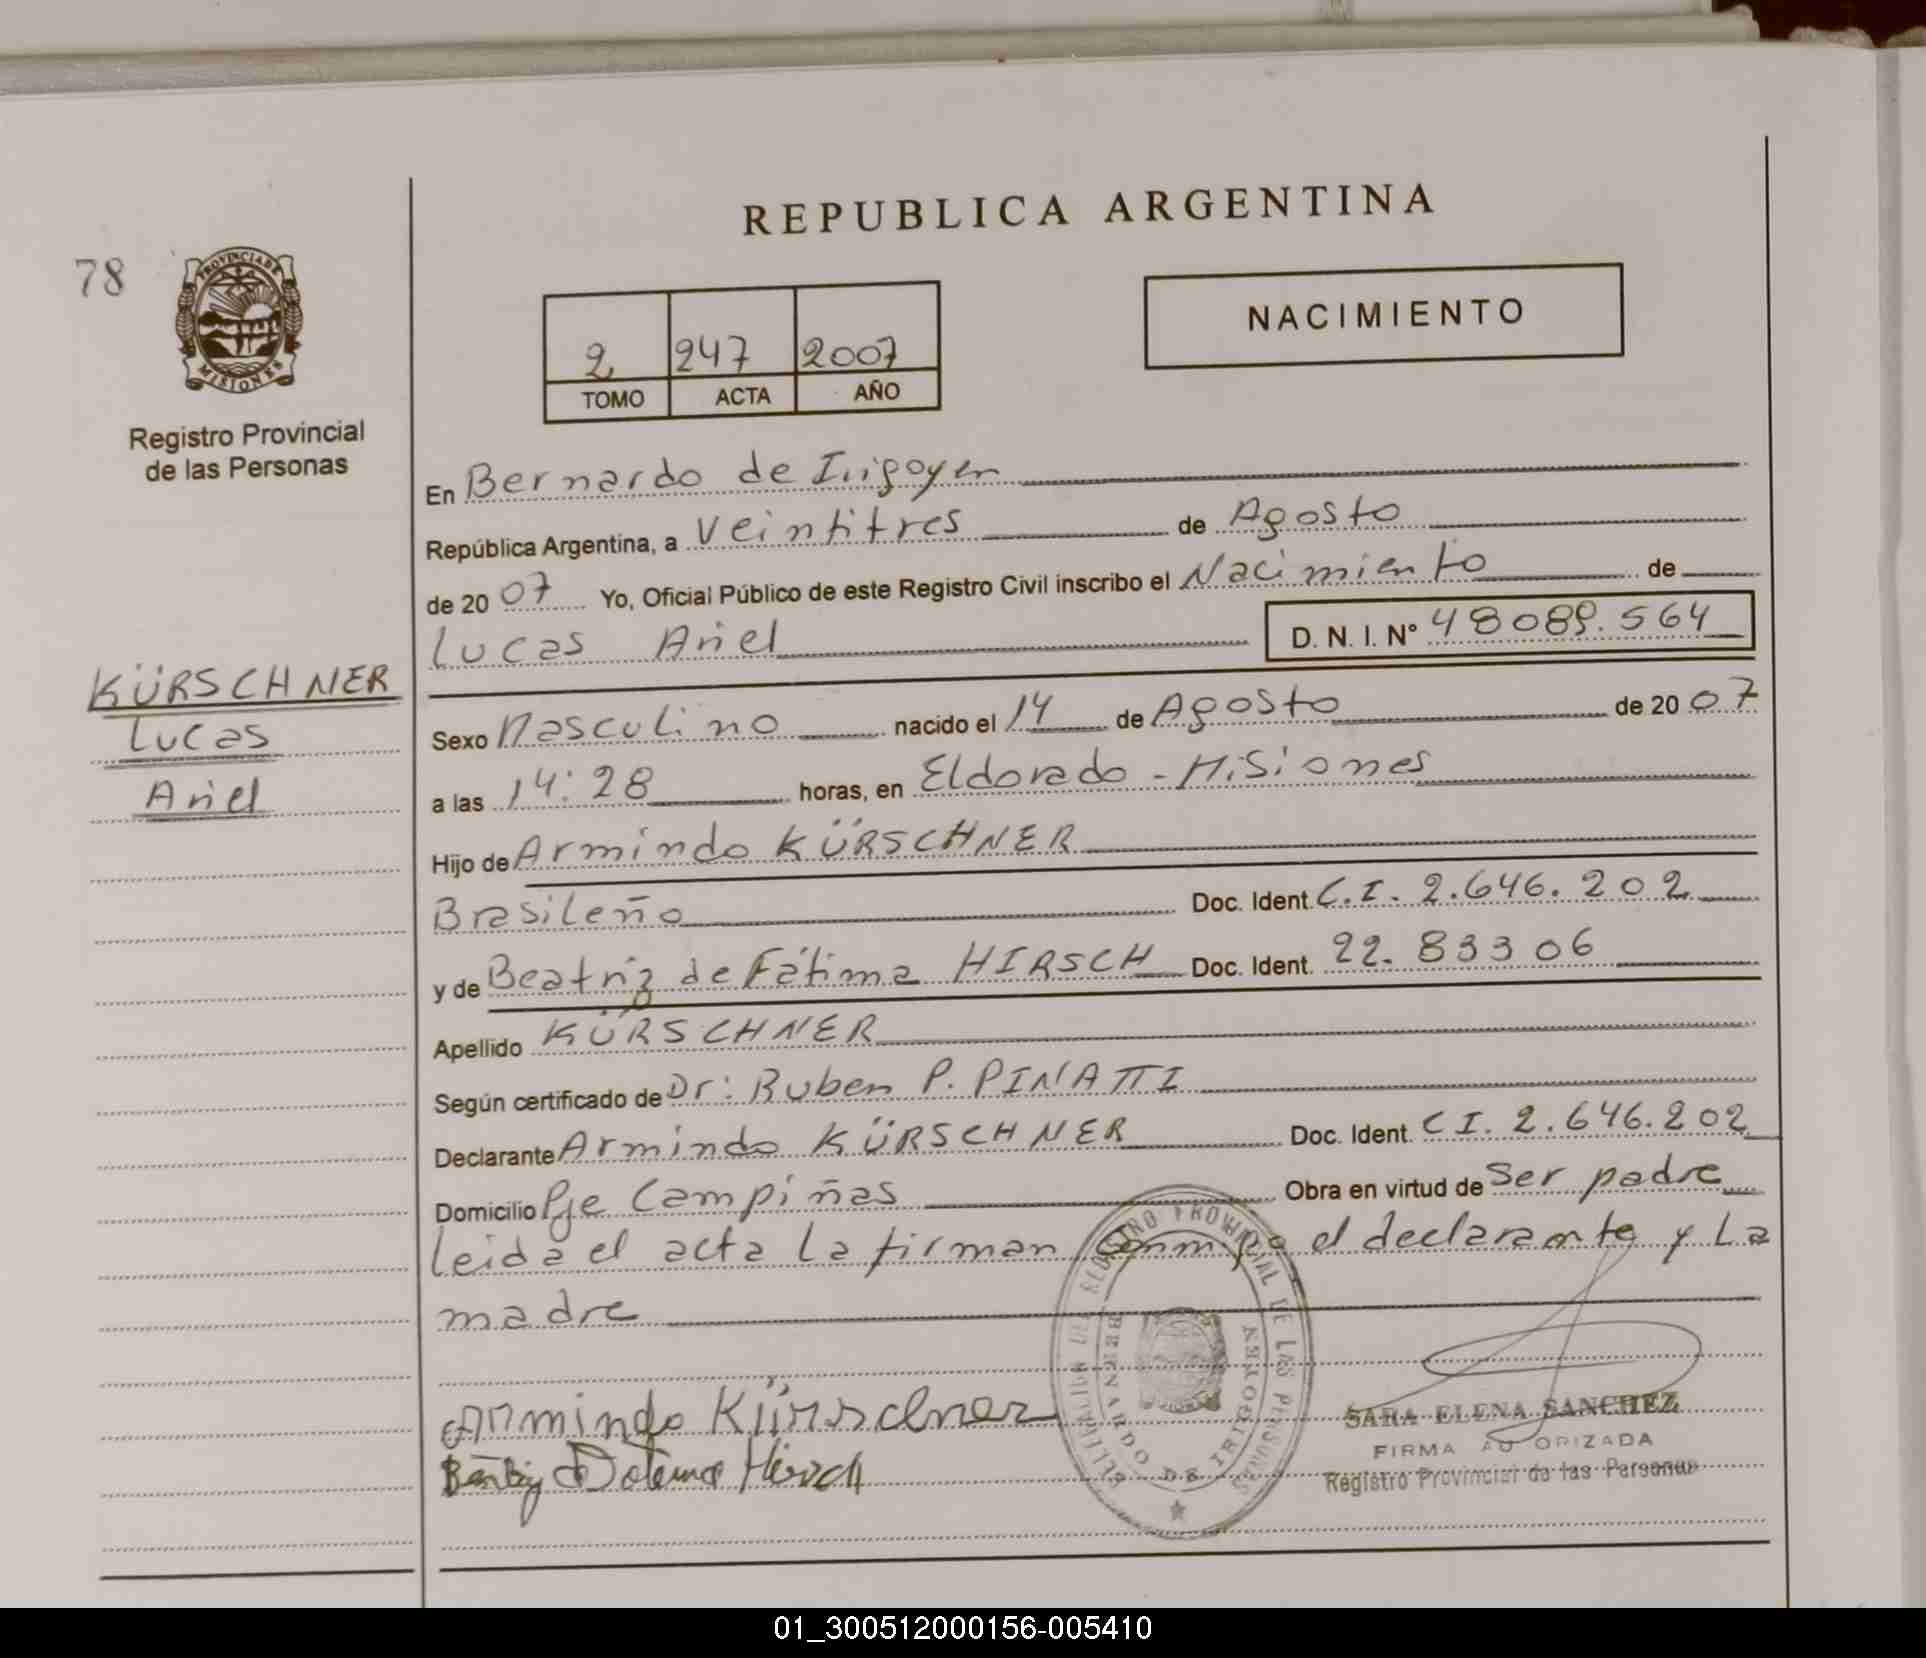 REPUBLICA ARGENTINA
78
PROVINCIA DE
MISIONES
NACIMIENTO
2 247 2007
TOMO ACTA AÑO
Registro Provincial
de las Personas
En Bernardo de Irigoyen
República Argentina, a Veintitres de Agosto
de 2007 Yo, Oficial Público de este Registro Civil inscribo el Nacimiento de
Lucas Ariel D. N. I. Nº 48089.564
KÜRSCHNER
Lucas
Ariel
Sexo Masculino nacido el 14 de Agosto de 2007
a las 14:28 horas, en Eldorado - Misiones
Hijo de Armindo KÜRSCHNER
Brasileño Doc. Ident. C.I. 2.646.202
y de Beatriz de Fátima HIRSCH Doc. Ident. 22.83306
Apellido KÜRSCHNER
Según certificado de Dr: Ruben P. PINATTI
Declarante Armindo KÜRSCHNER Doc. Ident. CI. 2.646.202
Domicilio Pje Campiñas Obra en virtud de Ser padre
leida el acta la firman conmigo el declarante y La
madre
DELEGACION DEL REGISTRO PROVINCIAL DE LAS PERSONAS
BERNARDO DE IRIGOYEN
Armindo Kürschner
Hirsch
SARA ELENA SANCHEZ
FIRMA AUTORIZADA
Registro Provincial de las Personas
01_300512000156-005410